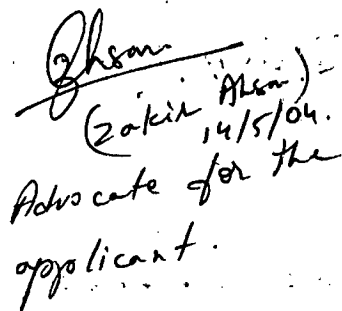 Zhsan.
(Zakir Ahsan)
14/5/04.
Advocate for the
applicant.